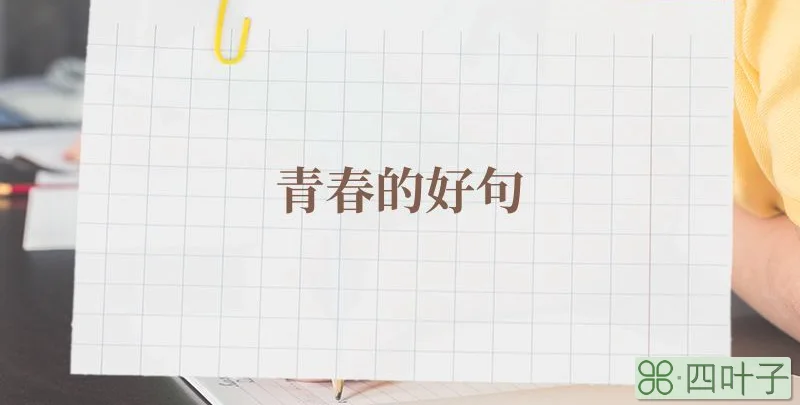 青春的好句
四叶子